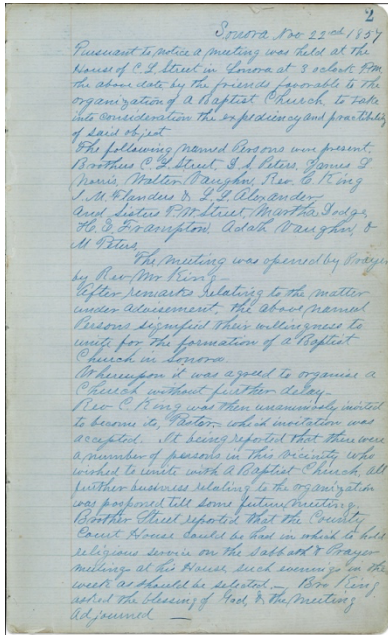 2
Sonora Nov 22nd 1857
Pursuant to notice a meeting was held at the
House of C. L. Street in Sonora at 3 oclock P.M.
the above date by the friends favorable to the
organization of a Baptist Church, to take
into consideration the expediency and practibility
of said object
The following named Persons were present.
Brothers C. L. Street, D. S. Peters, James L
Norris, Walter Vaughn, Rev. C. King
J. M. Flanders & L. L. Alexander
And Sisters P. W. Street, Martha Dodge,
H. E. Frampton, Adah Vaughn, &
M Peters.
The meeting was opened by Prayer
by Rev Mr King —
After remarks relating to the matter
under advisement, the above named
Persons signified their willingness to
unite for the formation of a Baptist
Church in Sonora
Whereupon it was agreed to organise a
Church without further delay —
Rev C. King was then unanimously invited
to become its, Pastor, which invitation was
accepted. It being reported that there were
a number of persons in this vicinity who
wished to unite with A Baptist Church, all
further business relating to the organization
was posponed till some future meeting.
Brother Street reported that the County
Court House could be had in which to hold
religious service on the Sabbath & Prayer
meeting at his House such evenings in the
week as should be selected. — Bro King
asked the blessing of God, & the meeting
Adjourned —